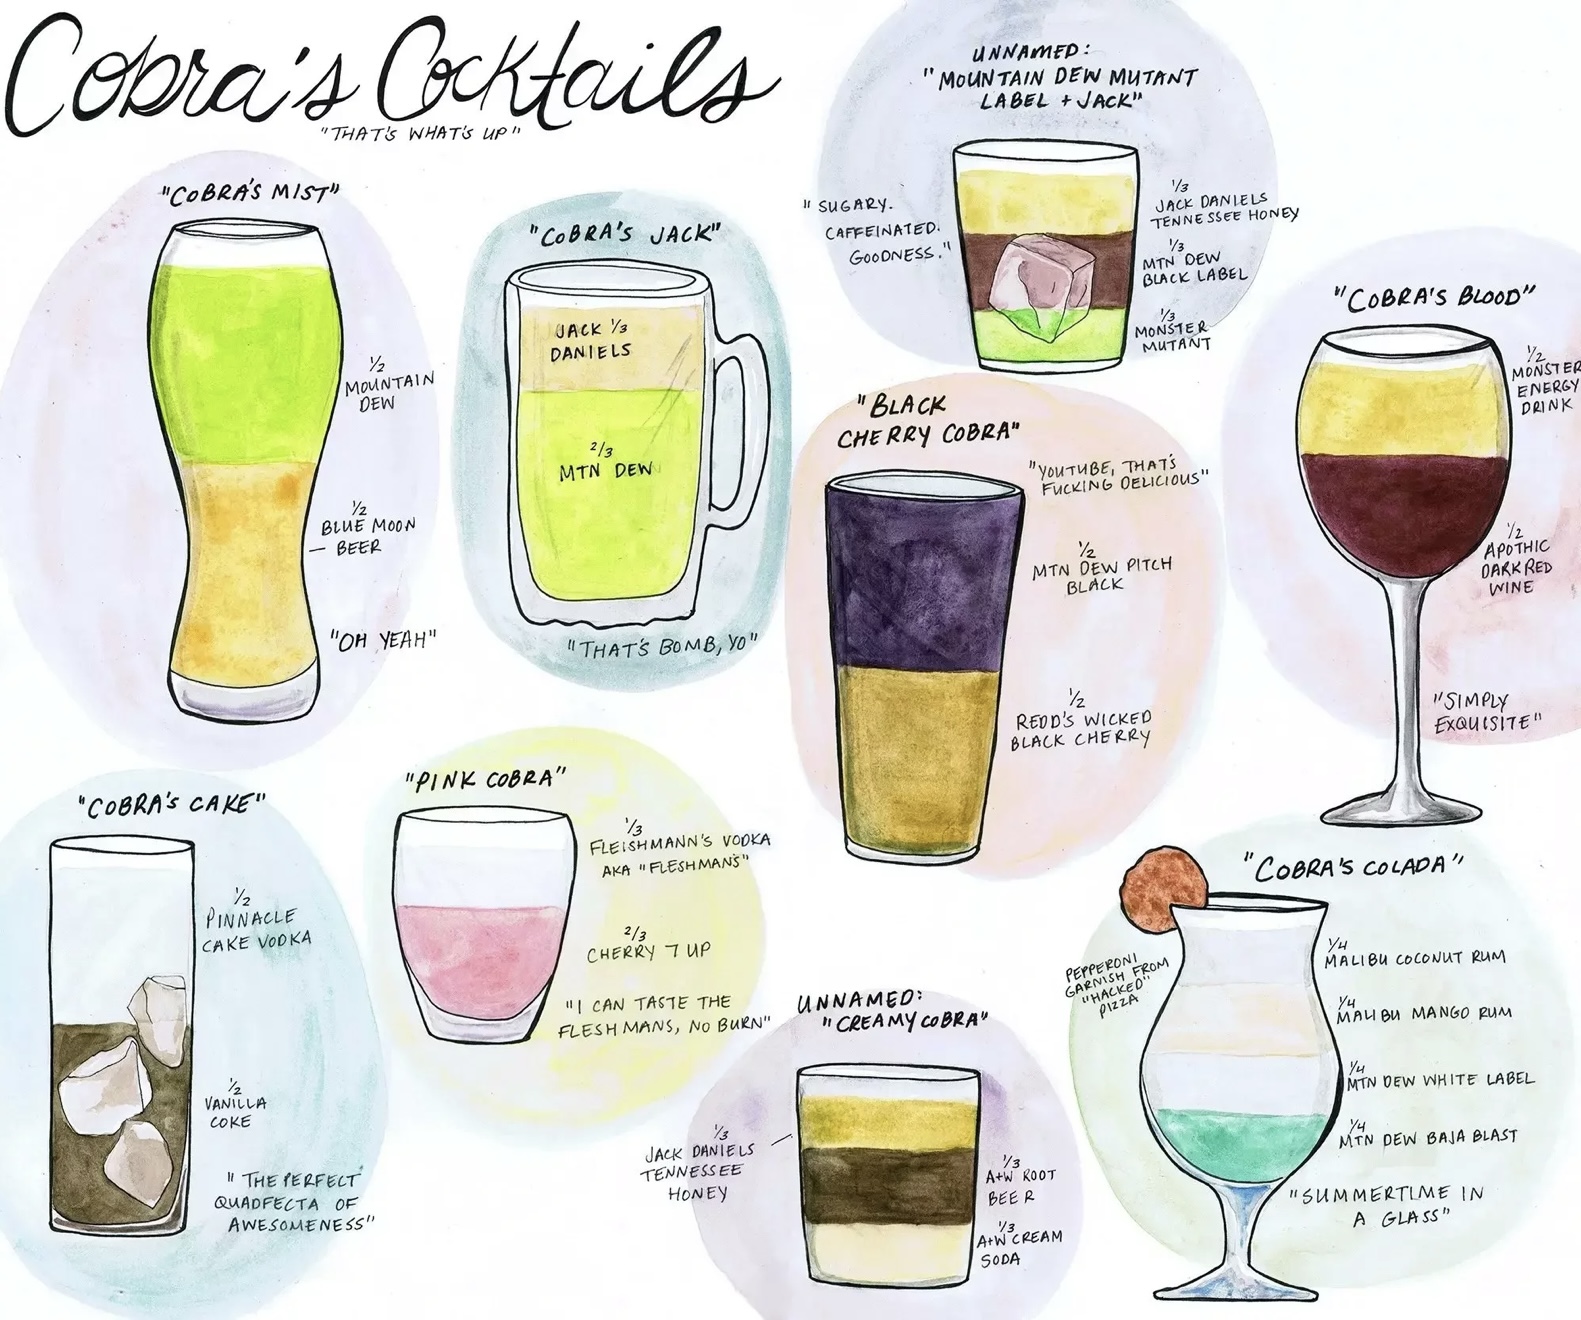 Cobra's Cocktails
"THAT'S WHAT'S UP"
"COBRA'S MIST"
1/2
MOUNTAIN
DEW
1/2
BLUE MOON
BEER
"OH YEAH"
"COBRA'S JACK"
JACK 1/3
DANIELS
2/3
MTN DEW
"THAT'S BOMB, YO"
UNNAMED:
"MOUNTAIN DEW MUTANT
LABEL + JACK"
"SUGARY.
CAFFEINATED.
GOODNESS."
1/3
JACK DANIELS
TENNESSEE HONEY
1/3
MTN DEW
BLACK LABEL
1/3
MONSTER
MUTANT
"BLACK
CHERRY COBRA"
"YOUTUBE, THAT'S
FUCKING DELICIOUS"
1/2
MTN DEW PITCH
BLACK
1/2
REDD'S WICKED
BLACK CHERRY
"COBRA'S BLOOD"
1/2
MONSTER
ENERGY
DRINK
1/2
APOTHIC
DARK RED
WINE
"SIMPLY
EXQUISITE"
"COBRA'S CAKE"
1/2
PINNACLE
CAKE VODKA
1/2
VANILLA
COKE
"THE PERFECT
QUADFECTA OF
AWESOMENESS"
"PINK COBRA"
1/3
FLEISHMANN'S VODKA
AKA "FLESHMAN'S"
2/3
CHERRY 7 UP
"I CAN TASTE THE
FLESHMANS, NO BURN"
UNNAMED:
"CREAMY COBRA"
1/3
JACK DANIELS
TENNESSEE
HONEY
1/3
A+W ROOT
BEER
1/3
A+W CREAM
SODA
"COBRA'S COLADA"
PEPPERONI
GARNISH FROM
"HACKED"
PIZZA
1/4
MALIBU COCONUT RUM
1/4
MALIBU MANGO RUM
1/4
MTN DEW WHITE LABEL
1/4
MTN DEW BAJA BLAST
"SUMMERTIME IN
A GLASS"